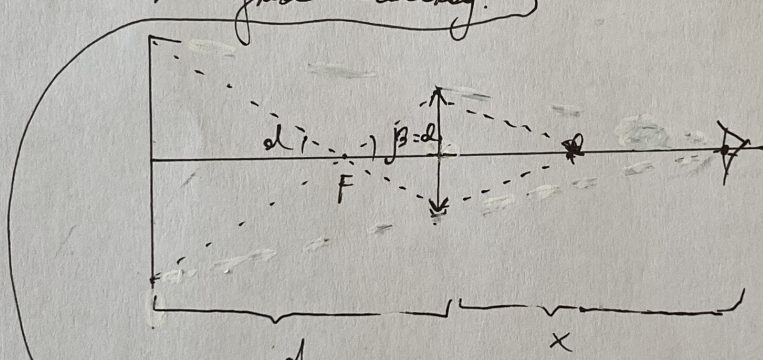 α β=α
F
d x